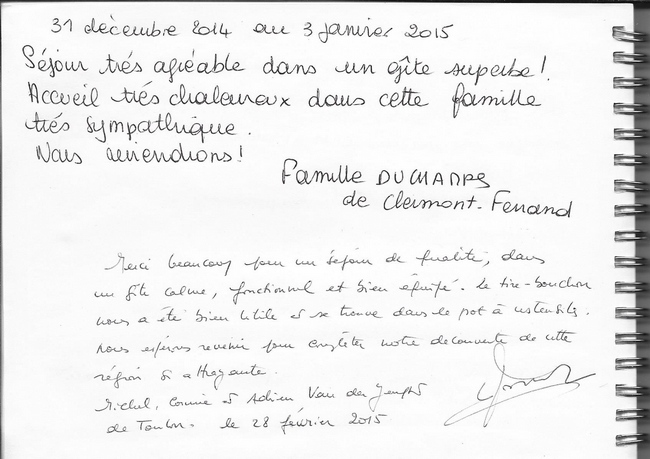 31 décembre 2014 au 3 janvier 2015
Séjour très agréable dans un gîte superbe!
Accueil très chaleureux dans cette famille
très sympathique.
Nous reviendrons!
Famille DUCHAMPS
de Clermont-Ferrand
Merci beaucoup pour un séjour de qualité, dans
un gîte calme, fonctionnel et bien équipé. Le tire-bouchon
nous a été bien utile et se trouve dans le pot à ustensiles.
Nous espérons revenir pour compléter notre découverte de cette
région si attrayante.
Michel, et Adrien Van der
de Toulon. le 28 février 2015